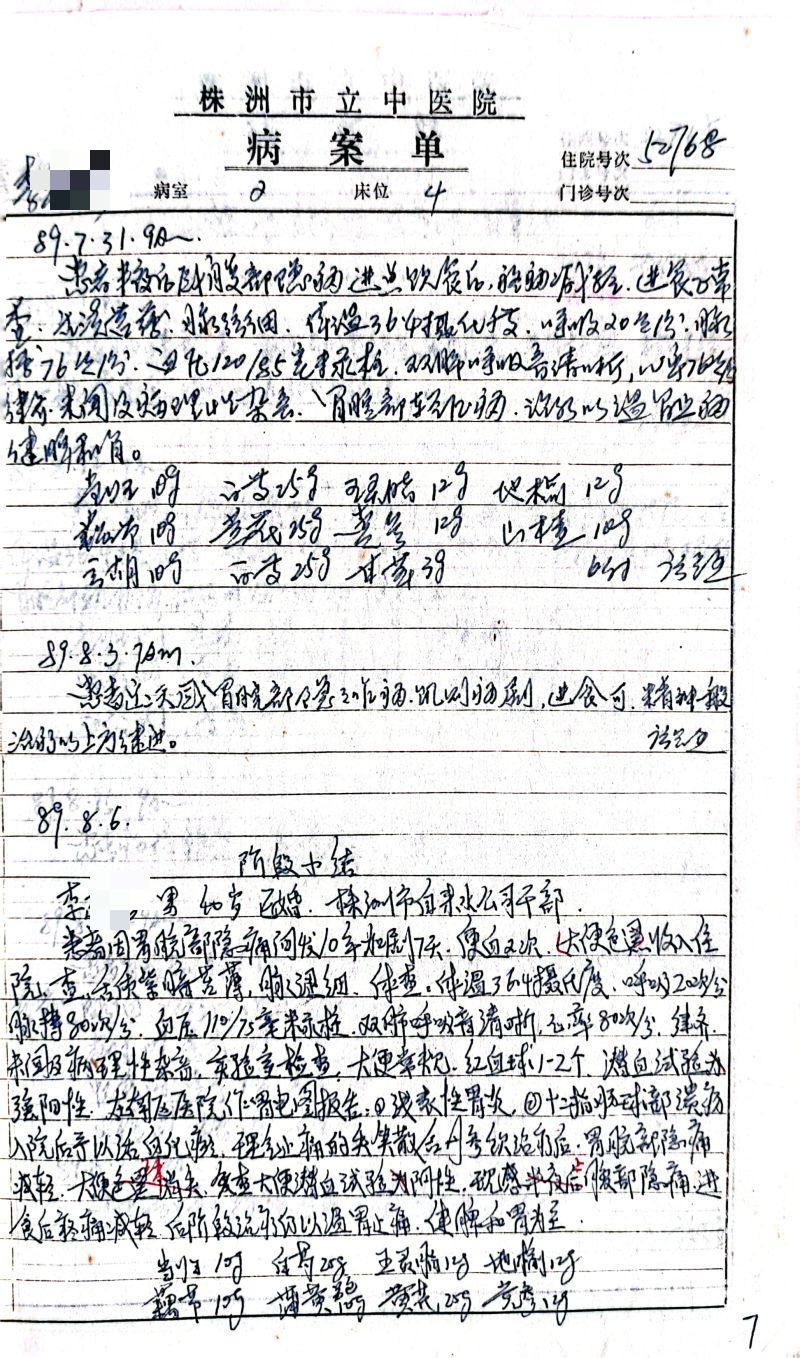 株洲市立中医院
病案单
住院号次 52768
病室 2 床位 4 门诊号次
李
89.7.31.9Am.
患者半夜后感腹部隐痛进点饮食后,疼痛减轻,进食正常
舌淡苔薄,脉弦细.体温36.4摄氏度.呼吸20次/分.脉
搏76次/分.血压120/85毫米汞柱.双肺呼吸音清晰,心率76次/分
律齐.未闻及病理性杂音.胃脘部轻压痛.治疗以温胃止痛
健脾和胃。
当归10g 白芍25g 五灵脂12g 地榆12g
藕节10g 黄芪25g 党参12g 山楂10g
元胡10g 白芍25g 甘草3g
89.8.3.7Am.
患者这二天感胃脘部隐痛.饥则痛剧,进食可.
治疗以上方继进。
89.8.6.
阶段小结
李 男 40岁 已婚.株洲市自来水公司干部.
患者因胃脘部隐痛间发10年加剧7天.便血2次.大便色黑收入住
院.查.舌质紫暗苔薄,脉弦细.体查.体温36.4摄氏度.呼吸20次/分
脉搏80次/分.血压110/75毫米汞柱.双肺呼吸音清晰,心率80次/分.律齐.
未闻及病理性杂音.实验室检查.大便常规.红血球1-2个.潜血试验为
强阳性.在南区医院作胃电图报告:①浅表性胃炎.②十二指肠球部溃疡
入院后予以活血化瘀.理气止痛的失笑散合丹参饮治疗后.胃脘部隐痛
减轻.大便色黑消失.复查大便潜血试验为阴性.现感半夜后腹部隐痛.进
食后疼痛减轻.后阶段治疗仍以温胃止痛.健脾和胃为主.
当归10g 白芍20g 五灵脂12g 地榆12g
藕节10g 蒲黄10g 黄芪20g 党参12g
7